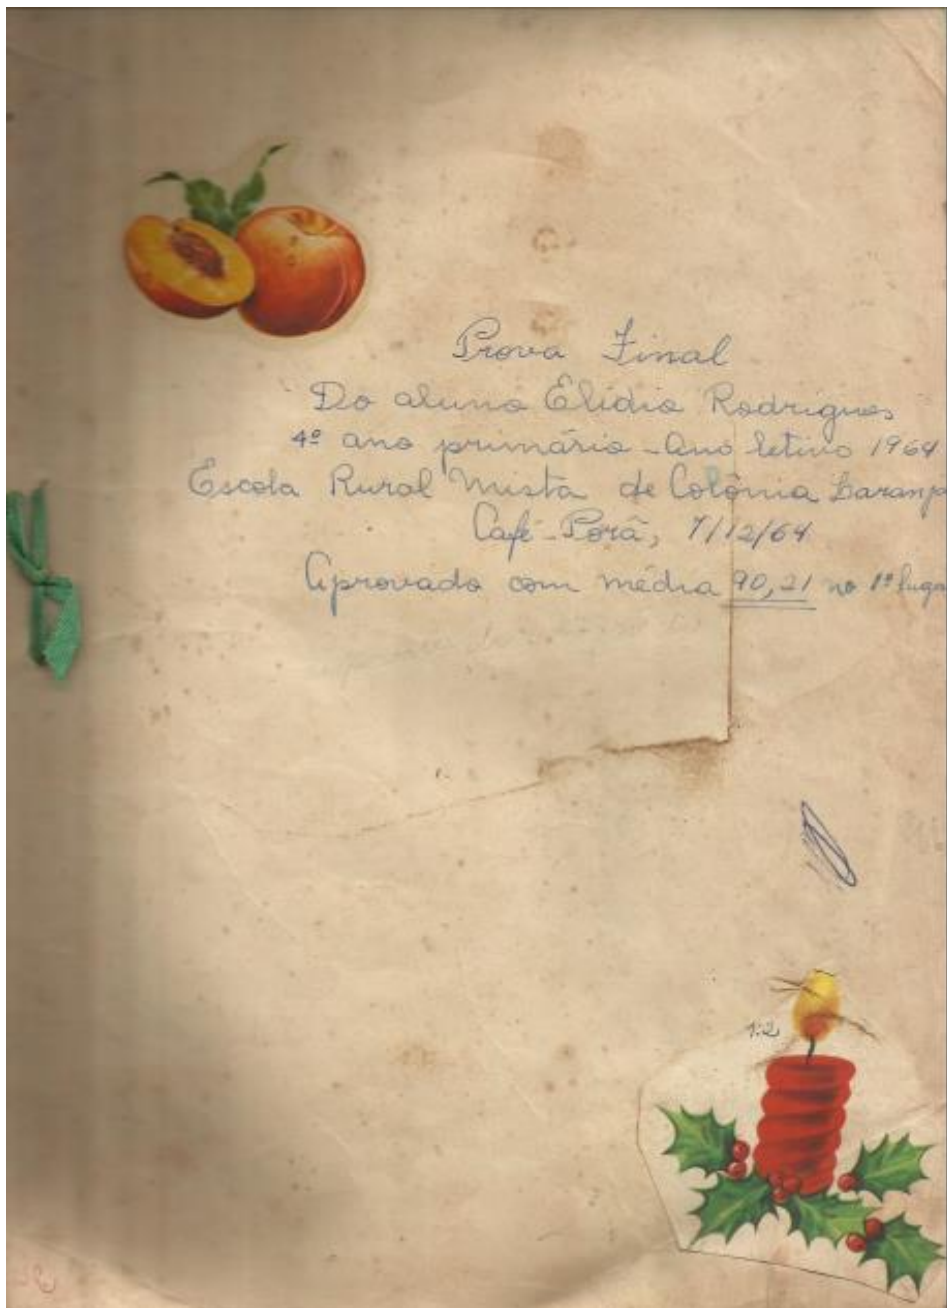 Prova Final
Do aluno Elidio Rodrigues
4º ano primário - Ano letivo 1964
Escola Rural Mista de Colônia Laranj
Café-Porã, 7/12/64
Aprovado com média 90,21 no 1º luga
1:2